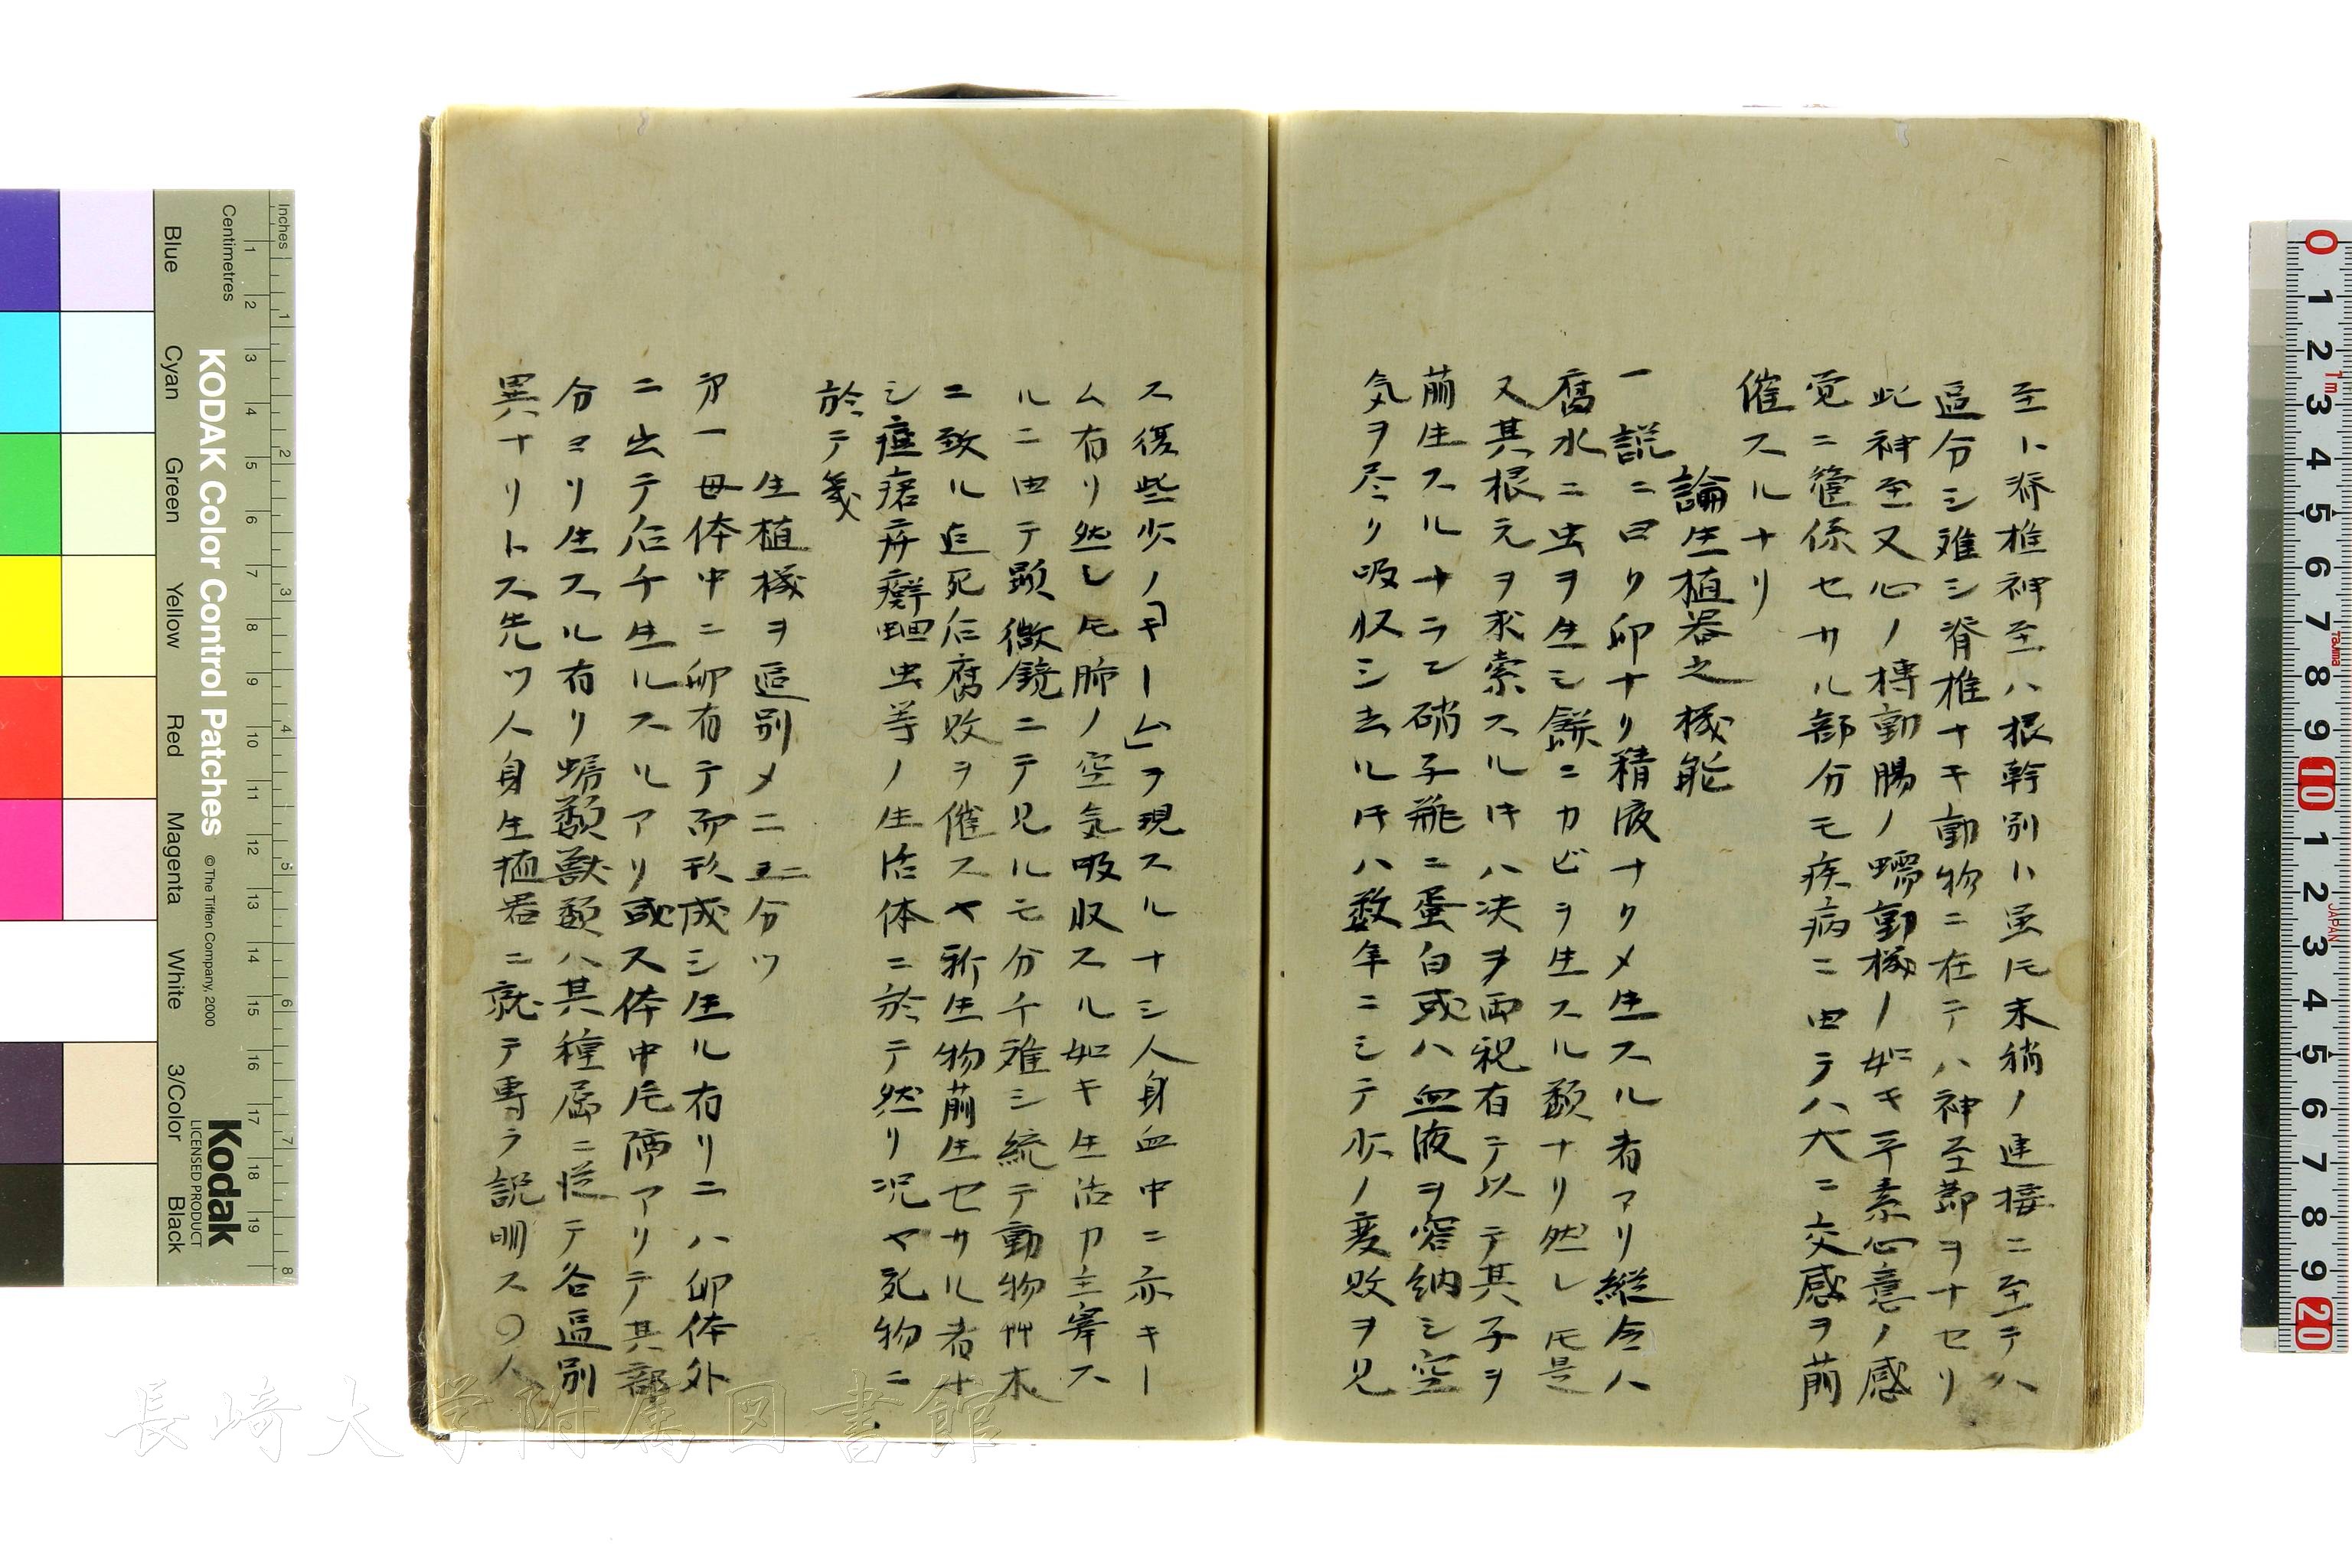 至ト脊椎神至ハ根幹別ト虽𪜈末稍ノ連接ニ至テハ
區分シ难シ脊椎ナキ動物ニ在テハ神至節ヲナセリ
此神至又心ノ摶動腸ノ蠕動機ノ如キ平素心意ノ感
覚ニ管係セサル部分モ疾病ニ由テハ大ニ交感ヲ萠
催スルナリ
論生植器之機能
一説ニ曰ク卵ナリ精液ナクメ生スル者アリ縦令ハ
腐水ニ虫ヲ生シ餅ニカビヲ生スル類ナリ然レ𪜈是
又其根元ヲ求索スル片ハ决ヲ両説有テ以テ其子ヲ
萠生スルナラン硝子瓶ニ蛋白或ハ血液ヲ容納シ空
気ヲ尽ク吸収シ去ル片ハ数年ニシテ少ノ変敗ヲ見
ス復些少ノ「キーム」ヲ現スルナシ人身血中ニ亦キー
ム有リ然レ𪜈肺ノ空気吸収スル如キ生活力主宰ス
ルニ由テ顕微鏡ニテ見ルモ分チ难シ統テ動物艸木
ニ致ル迄死后腐敗ヲ催スヤ新生物萠生セサル者ナ
シ疽瘡疥癬蛔虫等ノ生活体ニ於テ然リ况ヤ死物ニ
於テ㦲
生植機ヲ區別メニ五分ツ
㐧一母体中ニ卵有テ而形成シ生ル有リ二ハ卵体外
ニ出テ后チ生ルスルアリ或ス体中尾㾱アリテ其部
分ヨリ生スル有リ蜎類獣類ハ其種属ニ従テ各區別
異ナリトス先ツ人身生植器ニ就テ専ラ説明ス〇人
KODAK Color Control Patches
© The Tiffen Company, 2000
Kodak
LICENSED PRODUCT
Inches
Centimetres
Blue
Cyan
Green
Yellow
Red
Magenta
White
3/Color
Black
長崎大学附属図書館